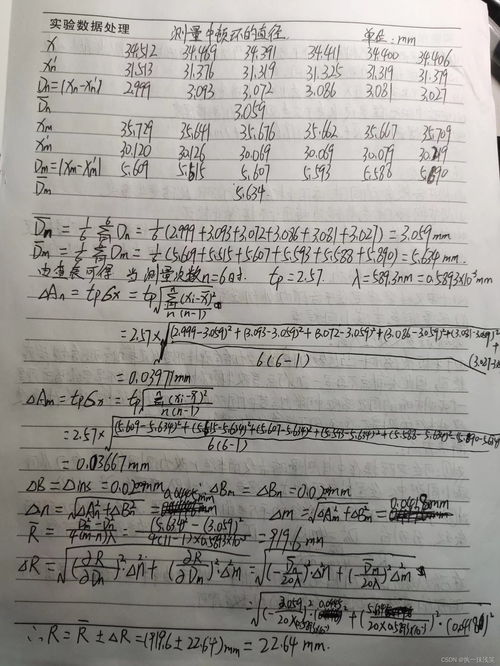 实验数据处理 测量牛顿环的直径 单位:mm
Xn 34.512 34.469 34.391 34.411 34.400 34.406
Xn' 31.513 31.376 31.319 31.325 31.319 31.379
Dn=|Xn-Xn'| 2.999 3.093 3.072 3.086 3.081 3.027
D̄n 3.059
Xm 35.729 35.641 35.676 35.662 35.667 35.709
Xm' 30.120 30.126 30.069 30.069 30.079
Dm=|Xm-Xm'| 5.609 5.515 5.607 5.593 5.588
D̄m 5.634
D̄n = 1/6 Σ Dn = 1/6 (2.999+3.093+3.072+3.086+3.081+3.027) = 3.059mm
D̄m = 1/6 Σ Dm = 1/6 (5.609+5.515+5.607+5.593+5.588+5.890) = 5.634 mm.
由查表可得 当测量次数n=6时. tp=2.57. λ=589.3nm=0.5893×10⁻³mm
ΔAn = tpSx = tp√(Σ(xi-x̄)²/n(n-1))
=2.57×√((2.999-3.059)²+(3.093-3.059)²+(3.072-3.059)²+(3.086-3.059)²+(3.081-3.059)²+
6(6-1)
=0.03971mm
ΔAm = tpSx = tp√(Σ(xi-x̄)²/n(n-1))
=2.57×√((5.609-5.634)²+(5.515-5.634)²+(5.607-5.634)²+(5.593-5.634)²+(5.588-5.634)²+(5.890-5.634)²
6(6-1)
=0.03667mm
ΔB=Δins=0.020mm ∴ΔBm=ΔBn=0.020mm
Δn=√(ΔAn²+ΔBn²)= 0.0445mm Δm=√(ΔAm²+ΔBm²)= 0.0418mm
R̄ = (D̄m²-D̄n²)/4(m-n)λ = ((5.634)²-(3.059)²)/4(11-1)×0.5893×10⁻³ = 919.6 mm
ΔR = √((∂R/∂Dn)²·Δn²+(∂R/∂Dm)²·Δm²) = √((-D̄n/20λ)²Δn²+(-D̄m/20λ)²Δm²)
∴R=R̄±ΔR=(919.6±22.64)mm=22.64mm.